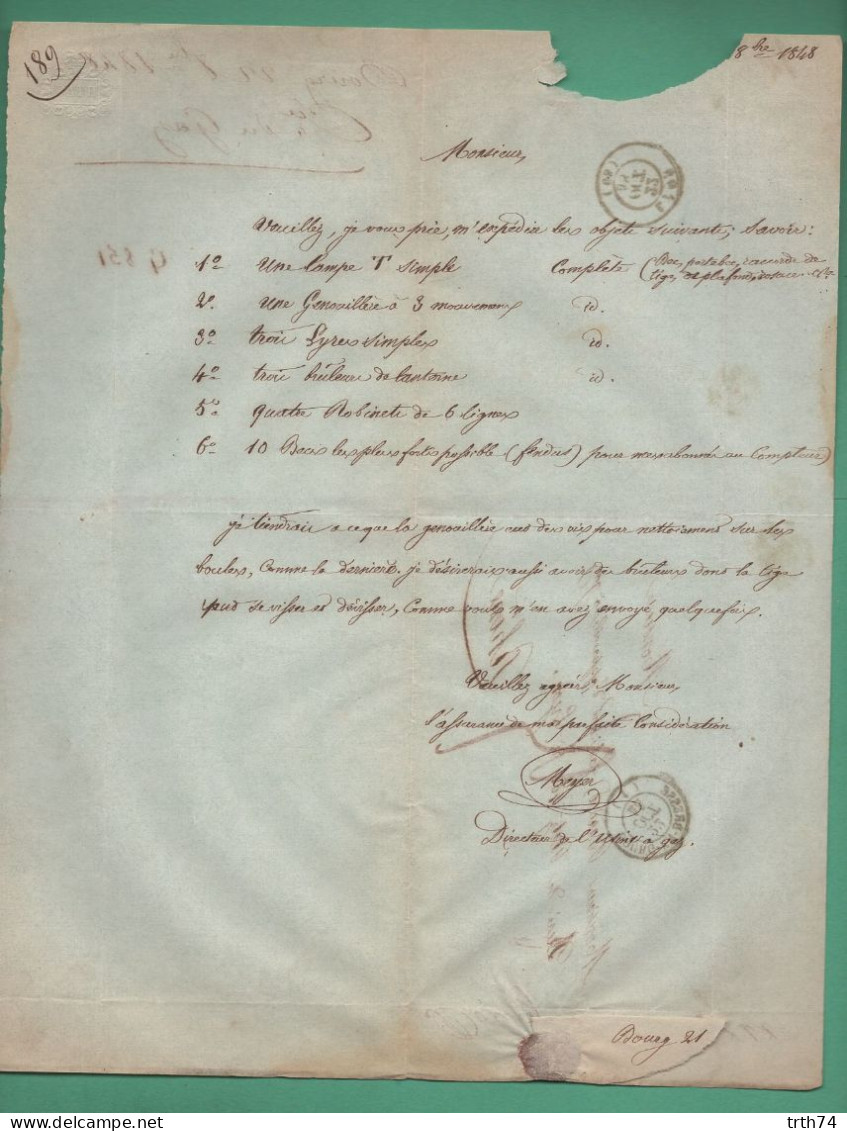 189
8bre 1848
Monsieur,
Veuillez, je vous prie, m'expédier les objets suivants; savoir:
1o Une lampe T simple Complète (Bec, portebec, raccords de
tige, et plafond, rosace etc
2o une Genouillère à 3 mouvements id.
3o trois Lyres simples id.
4o trois brûleurs de lanterne id
5o quatre Robinets de 6 lignes
6o 10 Becs les plus forts possible (fendus) pour mes abonnés au Compteur)
je tiendrais a ce que la genouillère eut des vis pour sur les
boules, comme la dernière. je désirerais aussi avoir des brûleurs dont la tige
peut se visser et dévisser, comme vous m'en avez envoyé quelquefois.
Veuillez agréer, Monsieur,
l'assurance de ma parfaite Considération
Meyer
Directeur de l'Usine a gaz.
Bourg 21
trth74